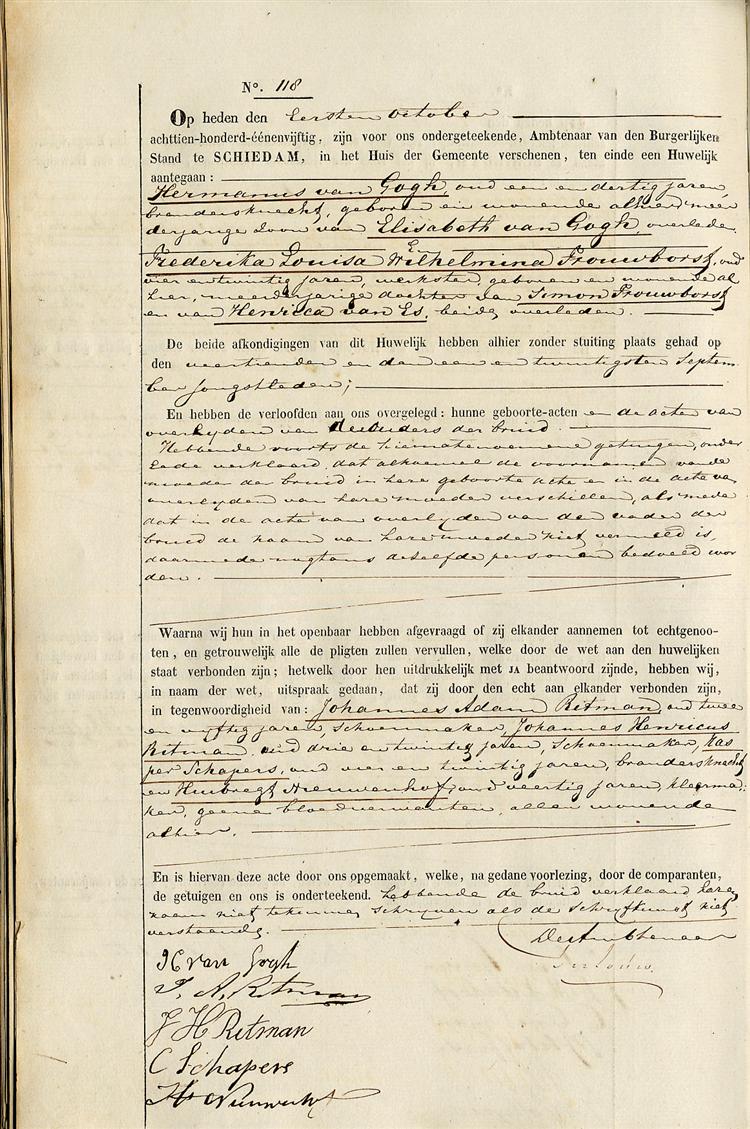 No. 118
Op heden den Eersten October
achttien-honderd-éénenvijftig, zijn voor ons ondergeteekende, Ambtenaar van den Burgerlijken
Stand te SCHIEDAM, in het Huis der Gemeente verschenen, ten einde een Huwelijk
aantegaan:
Hermanus van Gogh, oud een en dertig jaren,
brandersknecht, geboren en wonende alhier, meer
derjarige zoon van Elisabeth van Gogh, overleden.
En
Frederika Louisa Wilhelmina Trouwborst, oud
vier en twintig jaren, werkster, geboren en wonende al
hier, meerderjarige dochter van Simon Trouwborst
en van Henrica van Es, beide overleden.
De beide afkondigingen van dit Huwelijk hebben alhier zonder stuiting plaats gehad op
den veertienden en den een en twintigsten Septem
ber jongstleden;
En hebben de verloofden aan ons overgelegd: hunne geboorte-acten en de acten van
overlyden van de ouders der bruid.
Hebbende voorts de hiernatenoemene getuigen, onder
eede verklaard, dat alhoewel de voornamen van de
moeder der bruid in hare geboorte acte en in de acte van
overlyden van hare moeder verschillen, als mede
dat in de acte van overlyden van den vader der
bruid de naam van hare moeder niet vermeld is,
daarmede nogtans dezelfde personen bedoeld wor
den.
Waarna wij hun in het openbaar hebben afgevraagd of zij elkander aannemen tot echtgenoo-
ten, en getrouwelijk alle de pligten zullen vervullen, welke door de wet aan den huwelijken
staat verbonden zijn; hetwelk door hen uitdrukkelijk met JA beantwoord zijnde, hebben wij,
in naam der wet, uitspraak gedaan, dat zij door den echt aan elkander verbonden zijn,
in tegenwoordigheid van: Johannes Adam Ritman, oud twee
en vyftig jaren, schoenmaker, Johannes Henricus
Ritman, oud drie en twintig jaren, Schoenmaker, Kas
per Schapers, oud vier en twintig jaren, brandersknecht
en Huibregt Nieuwenhof, oud veertig jaren, kleerma
ker, geene bloedverwanten, allen wonende
alhier.
En is hiervan deze acte door ons opgemaakt, welke, na gedane voorlezing, door de comparanten,
de getuigen en ons is onderteekend. hebbende de bruid verklaard haren
naam niet te kunnen schryven als de schryfkunst niet
verstaande.
De Ambtenaar
H van Gogh
J. A. Ritman
J H Ritman
C Schapers